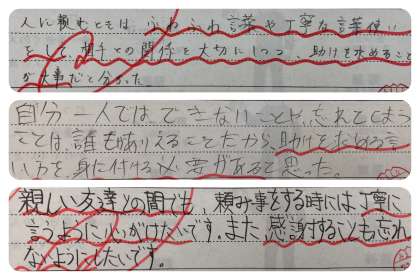 人に頼むときは、ふわふわ言葉や丁寧な言葉使い
をして相手との関係を大切にしつつ、助けを求めること
が大事だと分かった。
自分一人では、できないことや、忘れてしまう
ことは、誰もがありえることだから、助けを求める言
い方を、身に付ける必要があると思った。
親しい友達との間でも、頼み事をする時には、丁寧に
言うように心がけたいです。また、感謝することも忘れ
ないようにしたいです。